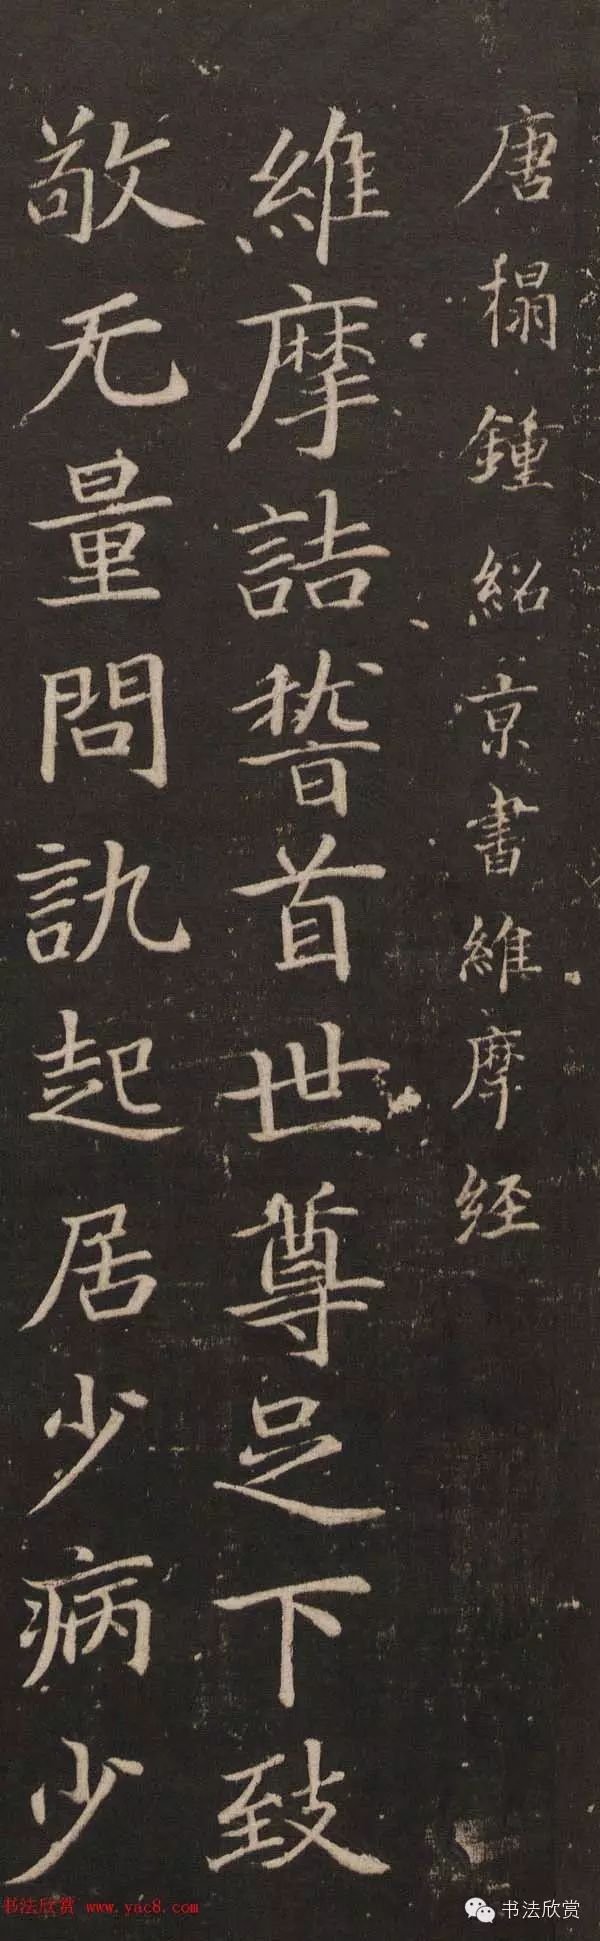 唐榻鍾紹京書維摩経
維摩詰稽首世尊足下致
敬无量問訊起居少病少
书法欣赏 www.yac8.com
书法欣赏